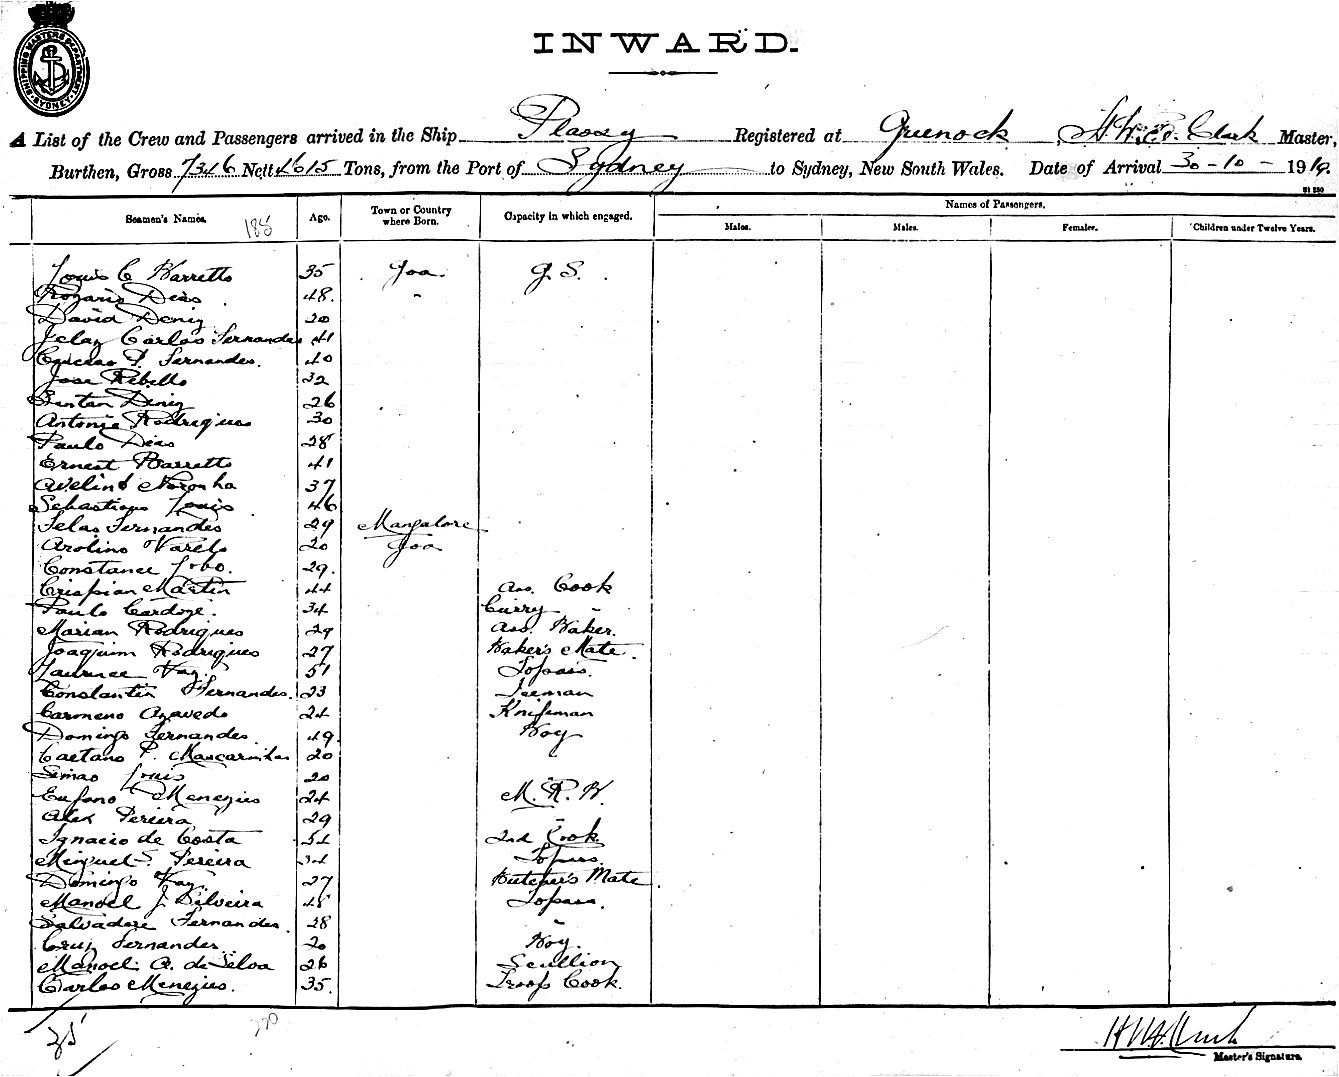 SHIPPING MASTERS DEPARTMENT SYDNEY
INWARD.
A List of the Crew and Passengers arrived in the Ship Plassy Registered at Greenock, Clark Master,
Burthen, Gross 7346 Nett 4615 Tons, from the Port of Sydney to Sydney, New South Wales. Date of Arrival 30-10-1919.
Seamen's Names. 185 Age. Town or Country where Born. Capacity in which engaged. Names of Passengers.
Males. Males. Females. Children under Twelve Years.
Louis C Barretto 35 Goa G. S.
Rozario Dias 48. "
David Deniz 20
Carlos Fernandes 41
Fernandes. 40
Jose Rebello 32
Deniz 26
Antonio Rodrigues 30
Paulo Dias 28
Ernest Barretto 41
Avelino Noronha 37
Sebastiao Louis 46
Selas Fernandes 29 Mangalore
Arolino Varela 20 Goa
Constance Lobo. 29.
Crispian Martin 44 Ass. Cook
Paulo Cardoze. 34 Curry "
Marian Rodrigues 29 Ass. Baker.
Joaquim Rodrigues 27 Baker's Mate.
Laurence Vaz. 51 Topass.
Constantin Fernandes. 23 Iceman
Carmeno Azavedo 24 Knifeman
Domingo Fernandes 19. Boy
Caetano P. Mascarinhas 20
Simao Louis 20
Menezies 24 M. R. B.
Alex Pereira 29 "
Ignacio de Costa 51 2nd Cook.
Miguel S. Pereira Topass.
Domingo Vaz. 27 Butcher's Mate.
Manoel J. Silveira 48 Topass.
Salvadore Fernandes. 28 "
Cruz Fernandes. 20 Boy.
Manoel A. de Silva 26 Scullion
Carlos Menezies. 35. Troops Cook.
35
220
Master's Signature.